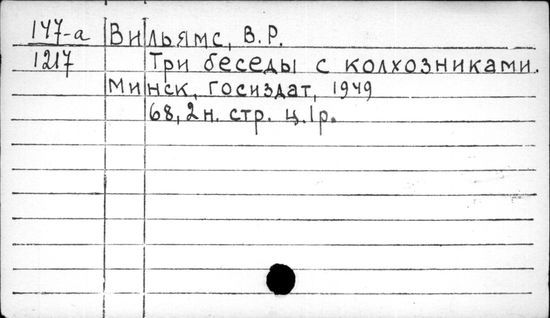 147-а Вильямс, В.Р.
1217 Три беседы с колхозниками.
Минск, госиздат, 1949
68, 2 н. стр. ц. 1 р.